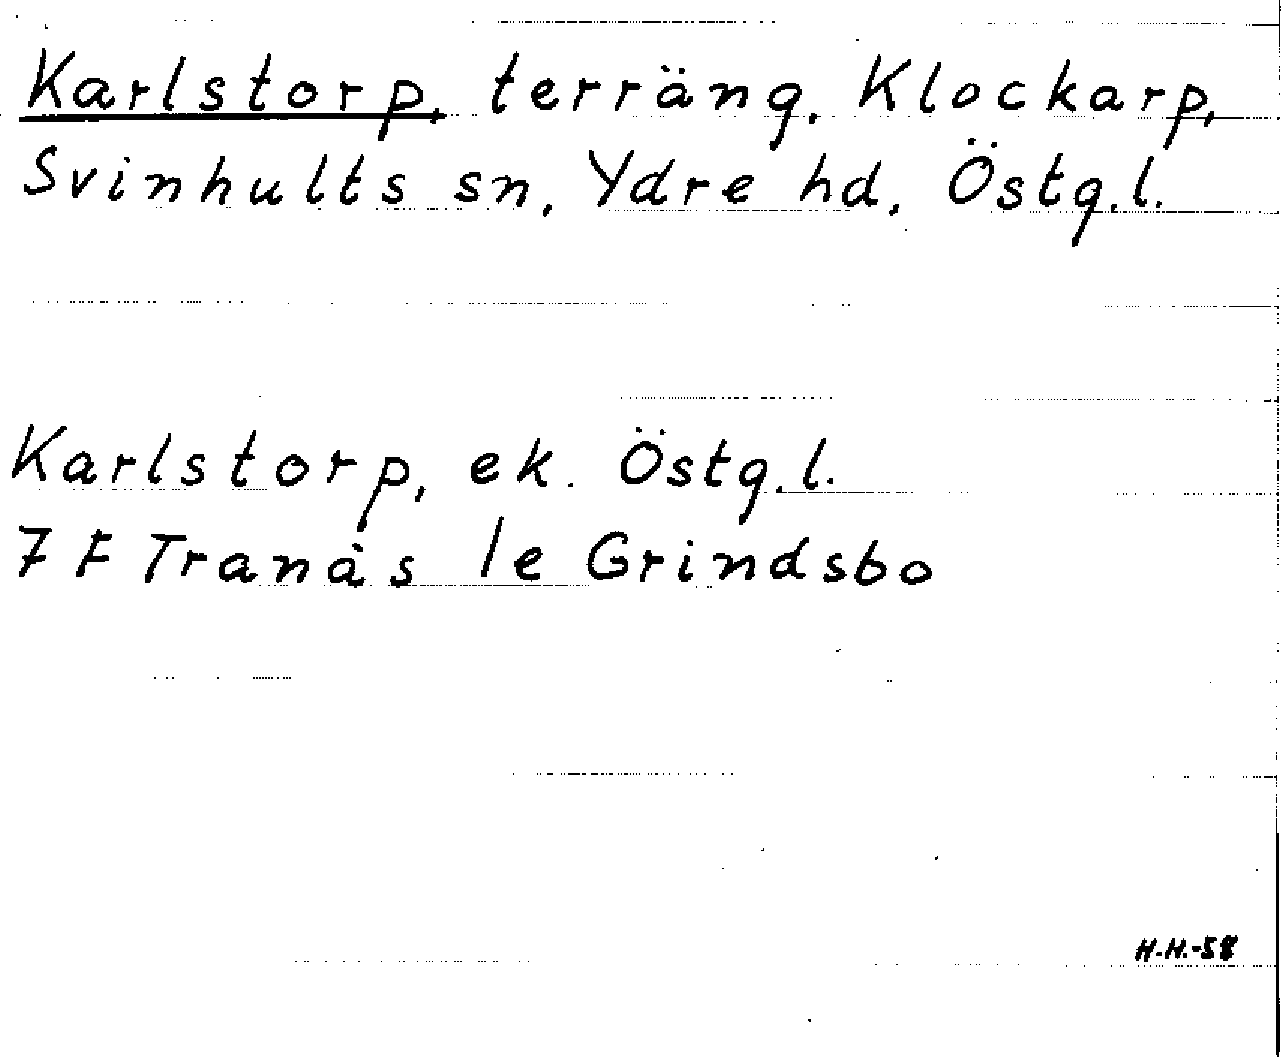 Karlstorp, terräng, Klockarp,
Svinhults sn, Ydre hd, Östg.l.
Karlstorp, ek. Östg.l.
7 F Tranås 1e Grindsbo
H.H.-58